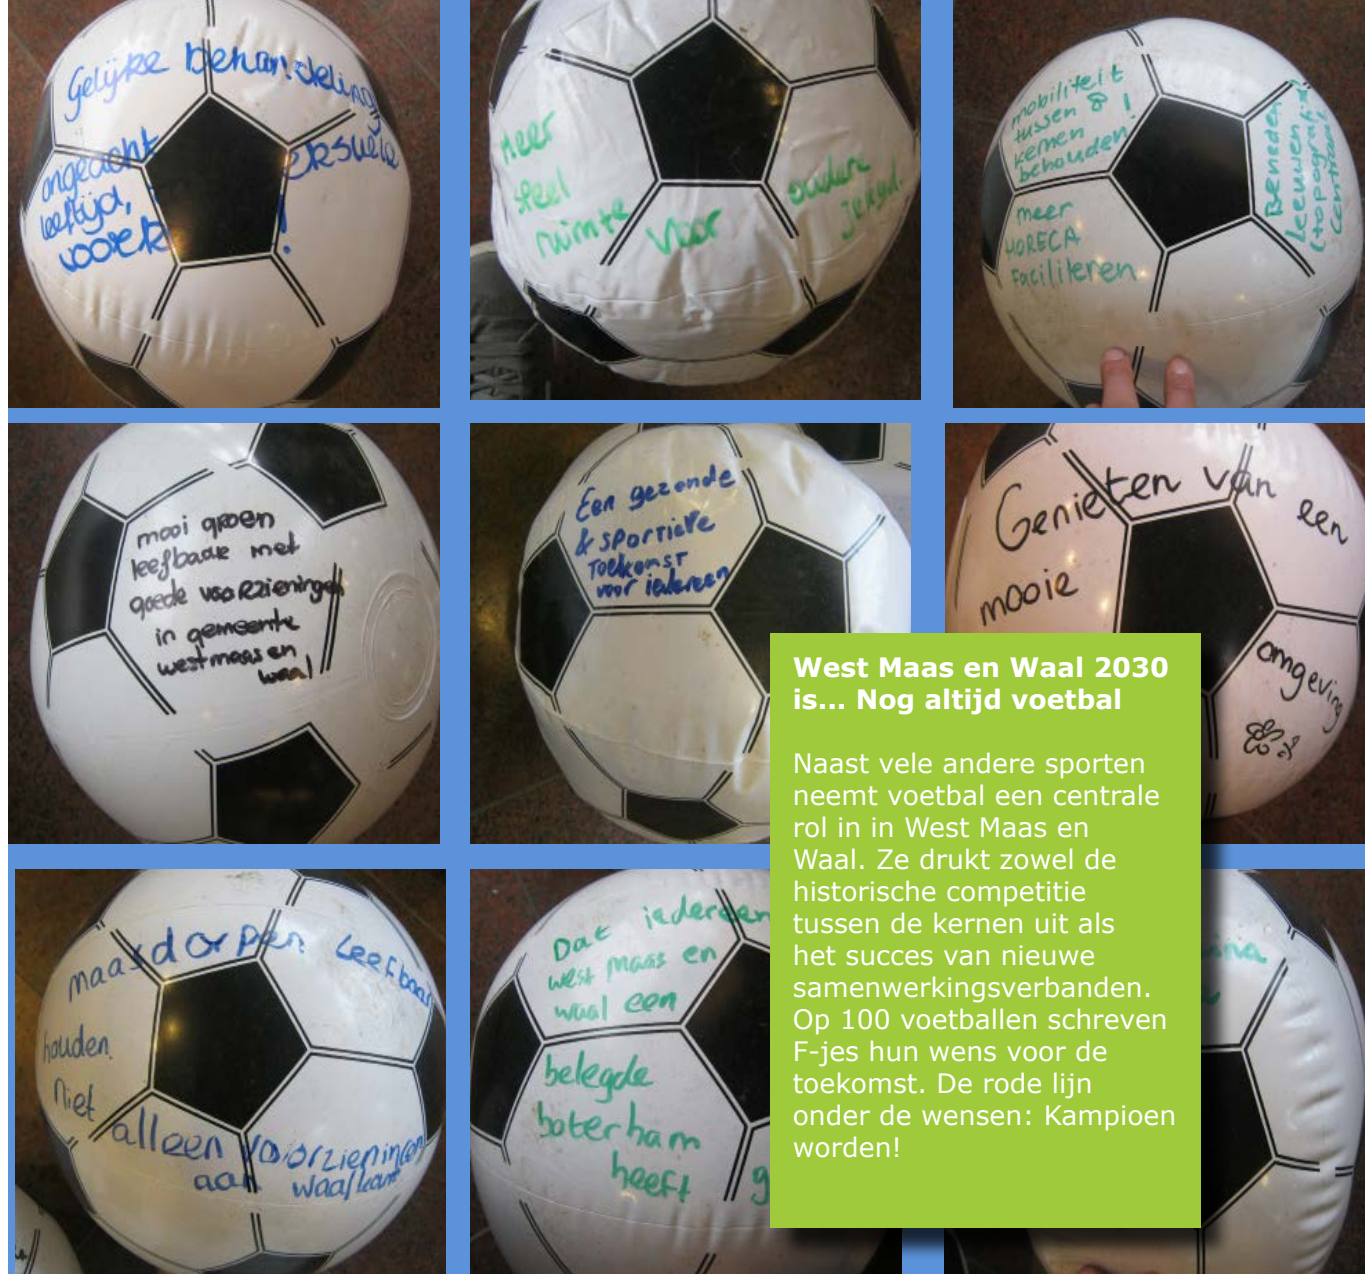 Gelijke behandeling
ongeacht
leeftijd,
Meer
speel
ruimte voor oudere
jeugd.
mobiliteit
tussen 8
kernen !
behouden!
meer
HORECA
Faciliteren
Beneden
Leeuwen
(topografisch
centraal
mooi groen
leefbaar met
goede voorzieningen
in gemeente
westmaas en
waal
Een gezonde
& sportieve
Toekomst
voor iedereen
Genieten van een
mooie
omgeving
maasdorpen Leefbaar
houden.
Niet
alleen voorzieningen
aan waalkant
Dat iedereen
west maas en
waal een
belegde
boterham
heeft
West Maas en Waal 2030
is... Nog altijd voetbal
Naast vele andere sporten
neemt voetbal een centrale
rol in in West Maas en
Waal. Ze drukt zowel de
historische competitie
tussen de kernen uit als
het succes van nieuwe
samenwerkingsverbanden.
Op 100 voetballen schreven
F-jes hun wens voor de
toekomst. De rode lijn
onder de wensen: Kampioen
worden!